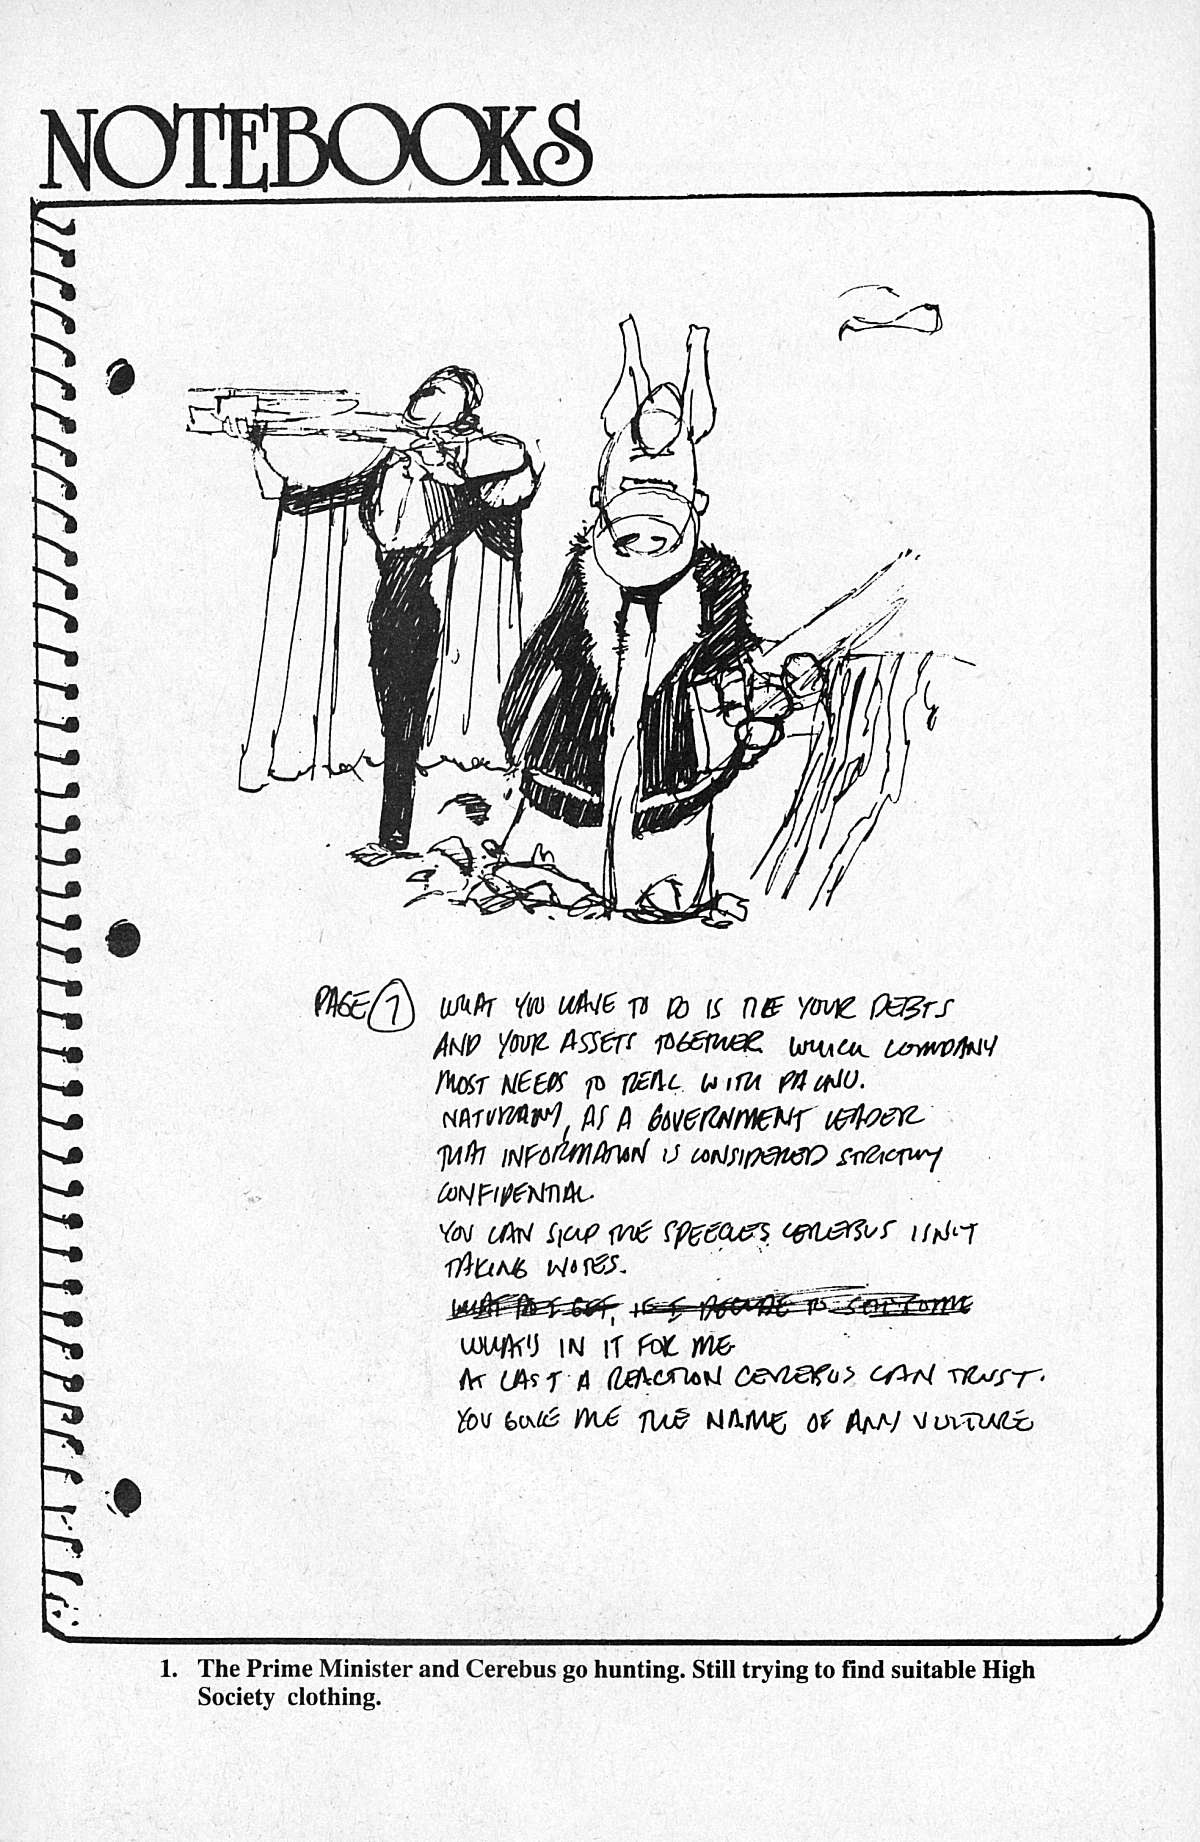 NOTEBOOKS
PAGE 7 WHAT YOU HAVE TO DO IS TIE YOUR DEBTS
AND YOUR ASSETS TOGETHER. WHICH COMPANY
MOST NEEDS TO DEAL WITH PALNU.
NATURALLY, AS A GOVERNMENT LEADER
THAT INFORMATION IS CONSIDERED STRICTLY
CONFIDENTIAL.
YOU CAN SKIP THE SPEECHES CEREBUS ISN'T
TAKING NOTES.
WHAT DO I GET, IF I DECIDE TO
WHAT'S IN IT FOR ME
AT LAST A REACTION CEREBUS CAN TRUST.
YOU GIVE ME THE NAME OF ANY VULTURE
1. The Prime Minister and Cerebus go hunting. Still trying to find suitable High
Society clothing.